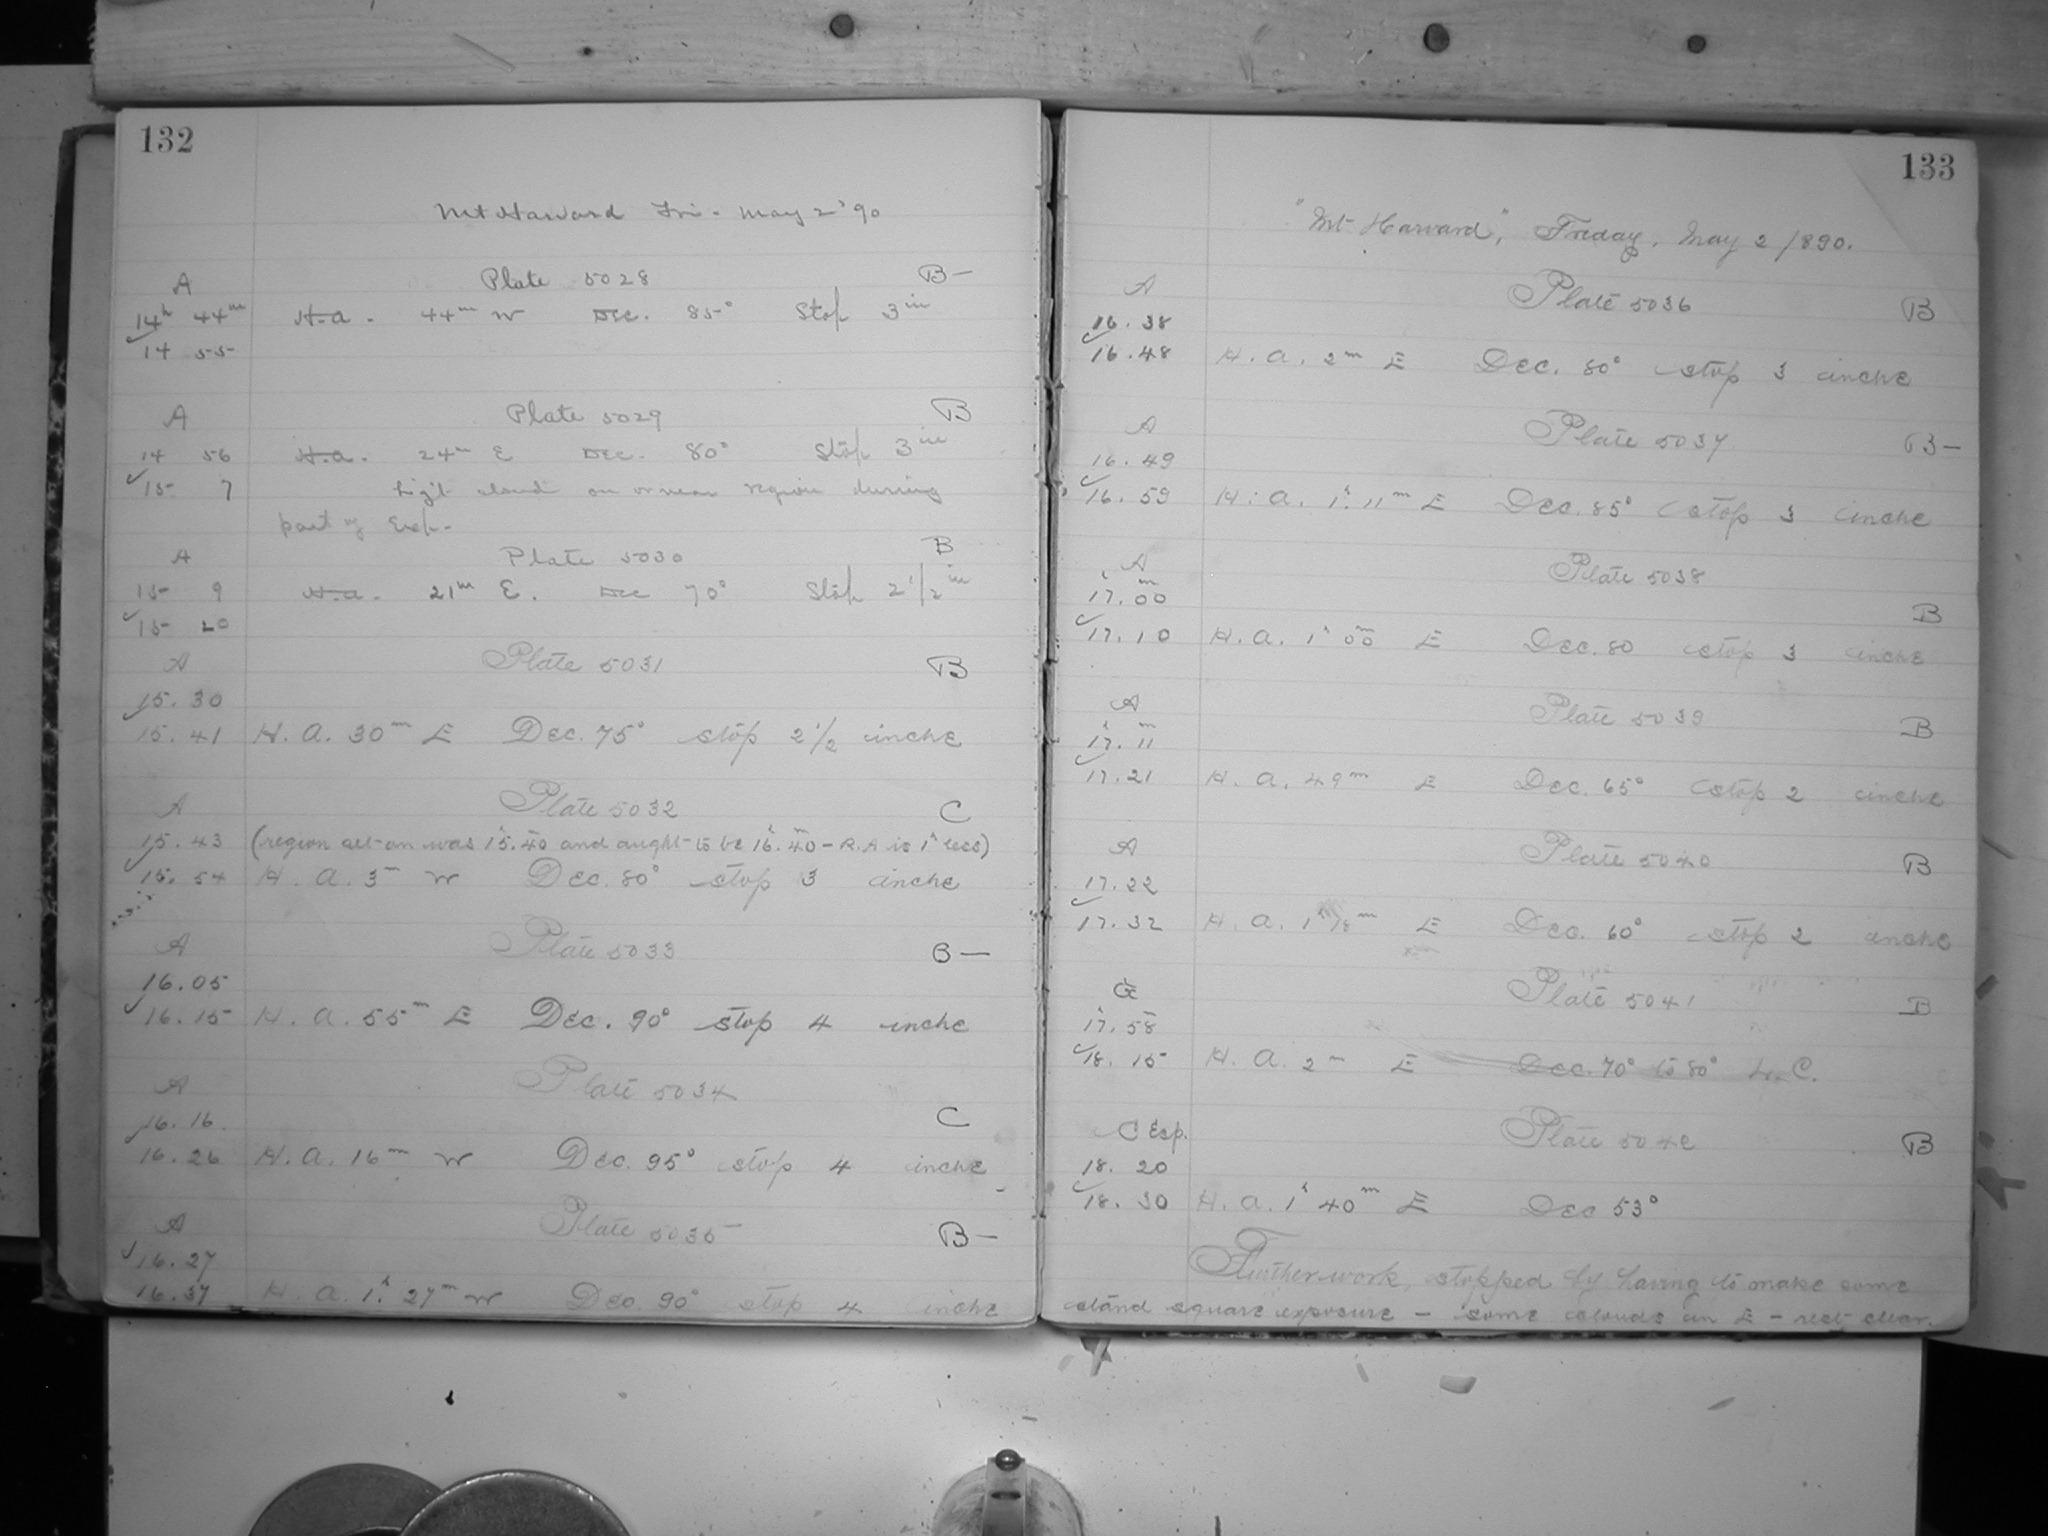 132
Mt Harvard Fri. May 2' 90
A Plate 5028 B—
14h 44m H.a. 44m W Dec. 85° Stop 3in
14 55
A Plate 5029 B
14 56 H.a. 24m E Dec. 80° Stop 3in
15 7 light cloud on or near region during
part of Exp.
A Plate 5030 B
15 9 H.a. 21m E. Dec 70° Stop 2 1/2in
15 20
A Plate 5031 B
15.30
15.41 H.A. 30m E Dec. 75° stop 2 1/2 inche
A Plate 5032 C
15.43 (region set on was 15h.40m and aught to be 16h.40m – R.A is 1h less)
15.54 H.A. 3m W Dec. 80° stop 3 inche
A Plate 5033 B—
16.05
16.15 H.A. 55m E Dec. 90° stop 4 inche
A Plate 5034
16.16. C
16.26 H.A. 16m W Dec. 95° stop 4 inche
A Plate 5035 B—
16.27
16.37 H.A. 1h. 27m W Dec. 90° stop 4 inche
133
"Mt Harvard", Friday, May 2 1890.
A Plate 5036 B
16.38
16.48 H.A. 2m E Dec. 80° stop 3 inche
A Plate 5037 B—
16.49
16.59 H.A. 1h.11m E Dec. 85° stop 3 inche
A Plate 5038
17h.00m B
17.10 H.A. 1h 00m E Dec. 80 stop 3 inche
A Plate 5039 B
17h.11m
17.21 H.A. 49m E Dec. 65° stop 2 inche
A Plate 5040 B
17.22
17.32 H.A. 1h 18m E Dec. 60° stop 2 inche
G Plate 5041 B
17h.58m
18.15 H.A. 2m E Dec. 70° to 80° L.C.
C Exp. Plate 5042 B
18.20
18.30 H.A. 1h 40m E Dec 53°
Further work, stopped by having to make some
stand square exposure – some clouds in E – rest clear.